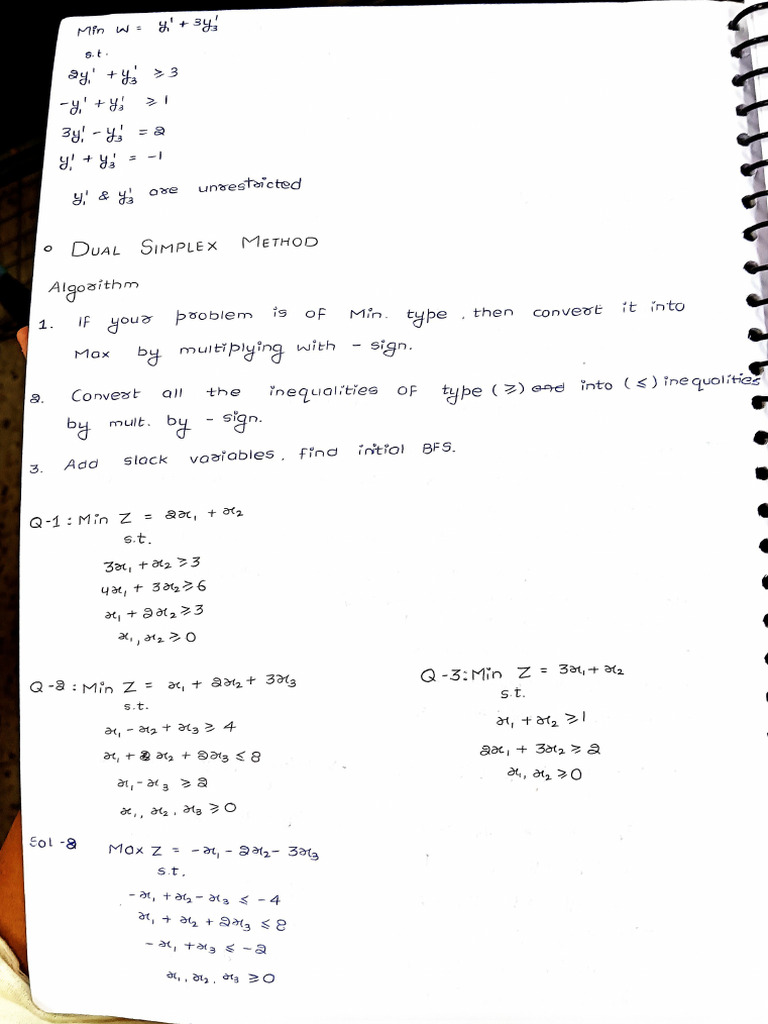 Min W = y₁' + 3y₃'
s.t.
2y₁' + y₃' ≥ 3
-y₁' + y₃' ≥ 1
3y₁' - y₃' = 2
y₁' + y₃' = -1
y₁' & y₃' are unrestricted
○ DUAL SIMPLEX METHOD
Algorithm
1. If your problem is of Min. type, then convert it into
Max by multiplying with - sign.
2. Convert all the inequalities of type (≥) and into (≤) inequalities
by mult. by - sign.
3. Add slack variables, find initial BFS.
Q-1: Min Z = 2x₁ + x₂
s.t.
3x₁ + x₂ ≥ 3
4x₁ + 3x₂ ≥ 6
x₁ + 2x₂ ≥ 3
x₁, x₂ ≥ 0
Q-2: Min Z = x₁ + 2x₂ + 3x₃
s.t.
x₁ - x₂ + x₃ ≥ 4
x₁ + x₂ + 2x₃ ≤ 8
x₁ - x₃ ≥ 2
x₁, x₂, x₃ ≥ 0
Q-3: Min Z = 3x₁ + x₂
s.t.
x₁ + x₂ ≥ 1
2x₁ + 3x₂ ≥ 2
x₁, x₂ ≥ 0
Sol-2 Max Z = -x₁ - 2x₂ - 3x₃
s.t.
-x₁ + x₂ - x₃ ≤ -4
x₁ + x₂ + 2x₃ ≤ 8
-x₁ + x₃ ≤ -2
x₁, x₂, x₃ ≥ 0